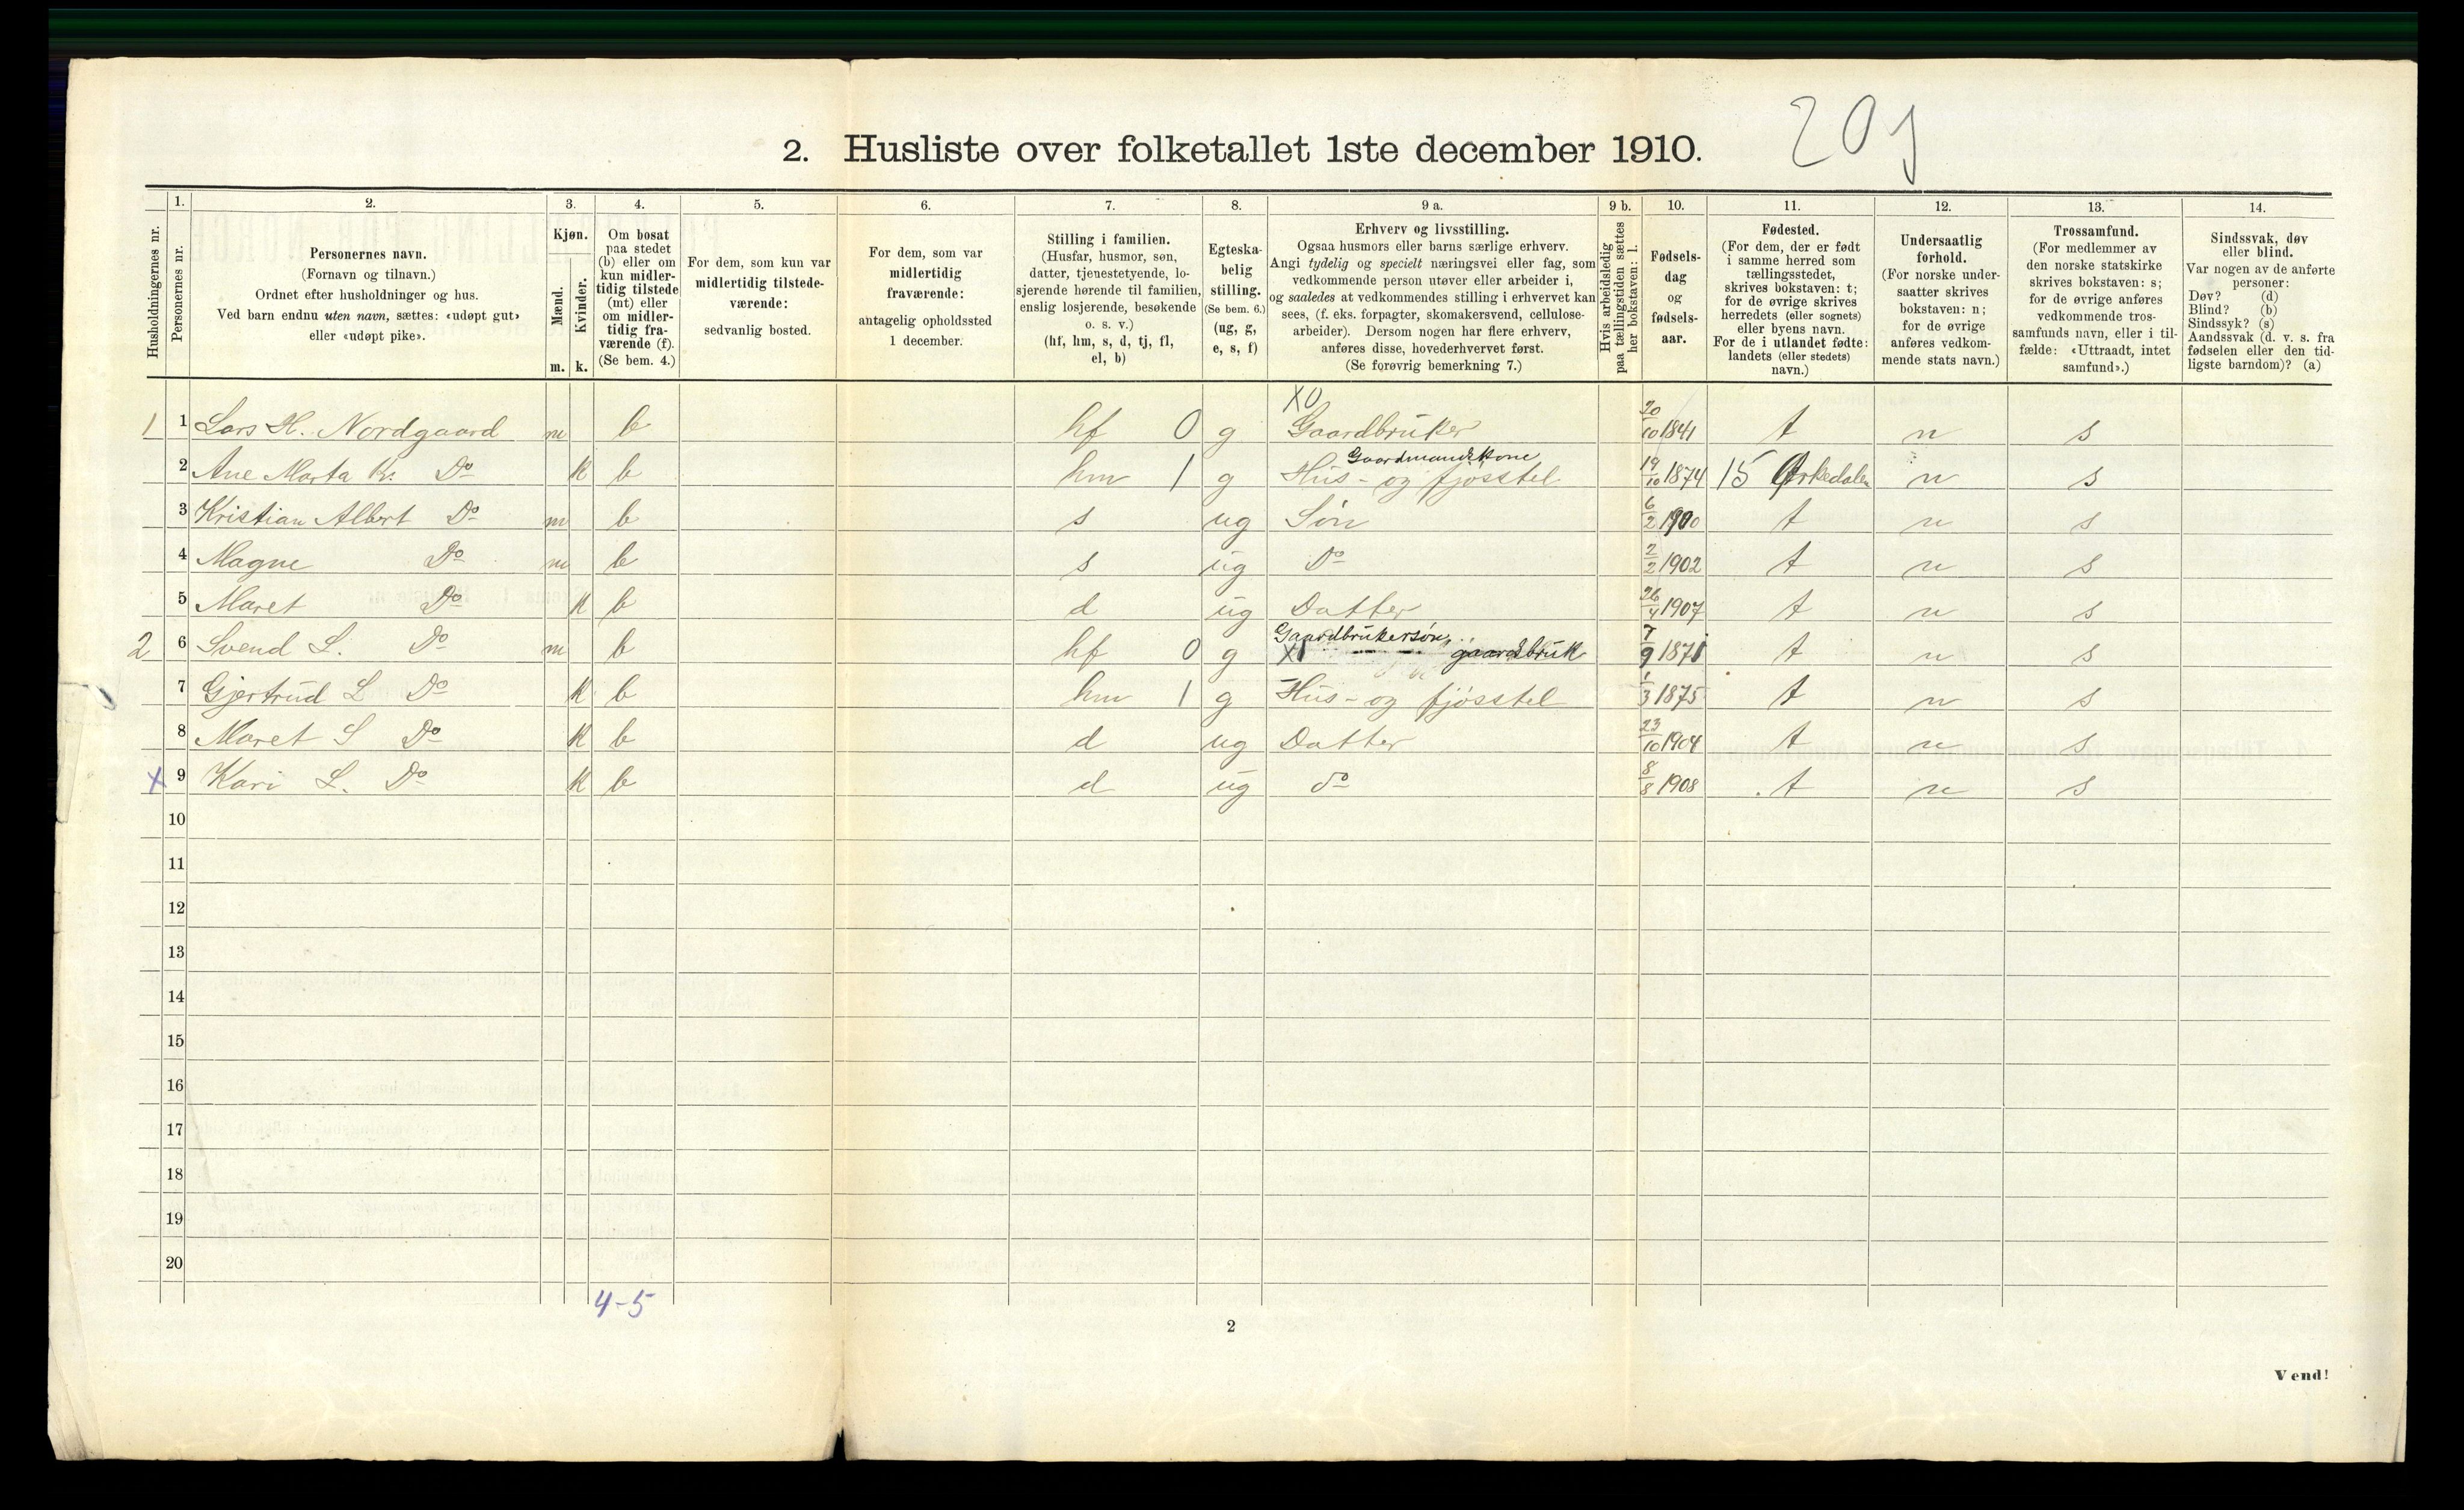 2. Husliste over folketallet 1ste december 1910.
209
Husholdningernes nr.
1. Personernes nr.
2. Personernes navn.
(Fornavn og tilnavn.)
Ordnet efter husholdninger og hus.
Ved barn endnu uten navn, sættes: «udøpt gut»
eller «udøpt pike».
3. Kjøn.
Mænd. m.
Kvinder. k.
4. Om bosat
paa stedet
(b) eller om
kun midler-
tidig tilstede
(mt) eller
om midler-
tidig fra-
værende (f).
(Se bem. 4.)
5. For dem, som kun var
midlertidig tilstede-
værende:
sedvanlig bosted.
6. For dem, som var
midlertidig
fraværende:
antagelig opholdssted
1 december.
7. Stilling i familien.
(Husfar, husmor, søn,
datter, tjenestetyende, lo-
sjerende hørende til familien,
enslig losjerende, besøkende
o. s. v.)
(hf, hm, s, d, tj, fl,
el, b)
8. Egteska-
belig
stilling.
(Se bem. 6.)
(ug, g,
e, s, f)
9 a. Erhverv og livsstilling.
Ogsaa husmors eller barns særlige erhverv.
Angi tydelig og specielt næringsvei eller fag, som
vedkommende person utøver eller arbeider i,
og saaledes at vedkommendes stilling i erhvervet kan
sees, (f. eks. forpagter, skomakersvend, cellulose-
arbeider). Dersom nogen har flere erhverv,
anføres disse, hovederhvervet først.
(Se forøvrig bemerkning 7.)
9 b. Hvis arbeidsledig
paa tællingstiden sættes
her bokstaven: l.
10. Fødsels-
dag
og
fødsels-
aar.
11. Fødested.
(For dem, der er født
i samme herred som
tællingsstedet,
skrives bokstaven: t;
for de øvrige skrives
herredets (eller sognets)
eller byens navn.
For de i utlandet fødte:
landets (eller stedets)
navn.)
12. Undersaatlig
forhold.
(For norske under-
saatter skrives
bokstaven: n;
for de øvrige
anføres vedkom-
mende stats navn.)
13. Trossamfund.
(For medlemmer av
den norske statskirke
skrives bokstaven: s;
for de øvrige anføres
vedkommende tros-
samfunds navn, eller i til-
fælde: «Uttraadt, intet
samfund».)
14. Sindssvak, døv
eller blind.
Var nogen av de anførte
personer:
Døv? (d)
Blind? (b)
Sindssyk? (s)
Aandssvak (d. v. s. fra
fødselen eller den tid-
ligste barndom)? (a)
1 1 Lars H. Nordgaard m b hf 0 g X0 Gaardbruker 20/10 1841 t n s
2 Ane Marta K. Do k b hm 1 g Gaardmandskone Hus- og fjøsstel 19/10 1874 15 Orkedalen n s
3 Kristian Albert Do m b s ug Søn 6/2 1900 t n s
4 Magne Do m b s ug Do 2/2 1902 t n s
5 Maret Do k b d ug Datter 26/4 1907 t n s
2 6 Svend L. Do m b hf 0 g Gaardbrukersøn X1 gaardsbruk 7/9 1871 t n s
7 Gjertrud L Do k b hm 1 g Hus- og fjøsstel 1/3 1875 t n s
8 Maret S Do k b d ug Datter 23/10 1904 t n s
X 9 Kari L. Do k b d ug do 8/8 1908 t n s
10
11
12
13
14
15
16
17
18
19
20
4-5
2
Vend!